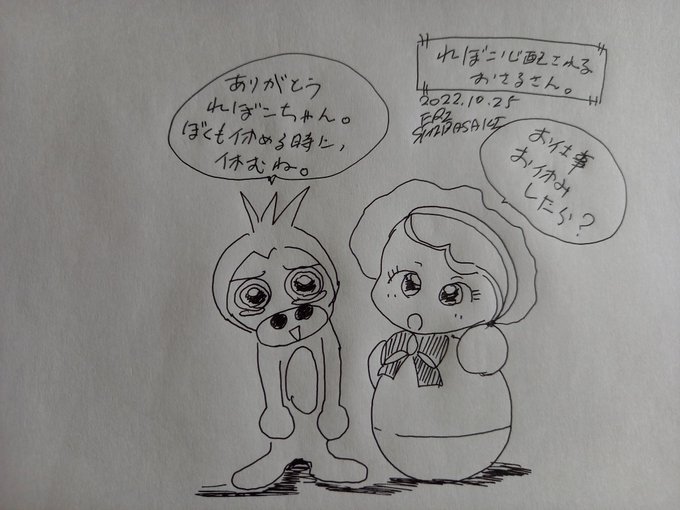 れぼこ心配される
おさるさん。
2022.10.25
お仕事
お休み
したら?
ありがとう
れぼこちゃん。
ぼくも休める時に、
休むね。